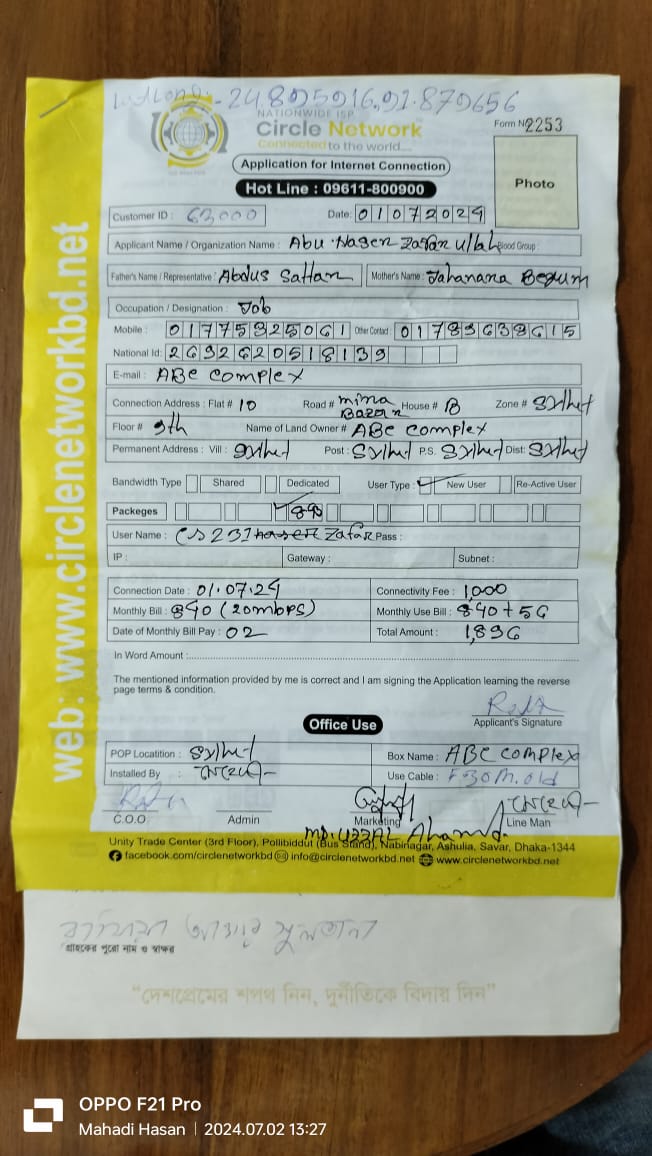 24.895916, 91.879656
NATIONWIDE ISP
Circle Network
Connected to the world....
Form No 2253
Application for Internet Connection
Photo
Hot Line : 09611-800900
Customer ID : 63000 Date: 01072024
Applicant Name / Organization Name : Abu Naser Zafar Ullah Blood Group :
Father's Name / Representative : Abdus Sattar Mother's Name : Jahanara Begum
Occupation / Designation : Job
Mobile : 01775325061 Other Contact :
National Id:
E-mail : ABC complex
Connection Address : Flat # 10 Road # mira Bazar House # B Zone # Sylhet
Floor # 9th Name of Land Owner # ABC complex
Permanent Address : Vill : Sylhet Post : Sylhet P.S. Sylhet Dist: Sylhet
Bandwidth Type Shared Dedicated User Type : New User Re-Active User
Packeges
User Name : Pass :
IP : Gateway : Subnet :
Connection Date : 01.07.24 Connectivity Fee : 1,000
Monthly Bill : 840 (20mbps) Monthly Use Bill : 840 + 56
Date of Monthly Bill Pay : 02 Total Amount : 1,896
In Word Amount :
The mentioned information provided by me is correct and I am signing the Application learning the reverse
page terms & condition.
Applicant's Signature
Office Use
POP Locatition : Sylhet Box Name : ABC complex
Installed By : Use Cable : F 30 M. old
C.O.O Admin Marketing Line Man
MD. UZZAL Ahamd.
Unity Trade Center (3rd Floor), Pollibiddut (Bus Stand), Nabinagar, Ashulia, Savar, Dhaka-1344
facebook.com/circlenetworkbd info@circlenetworkbd.net www.circlenetworkbd.net
web: www.circlenetworkbd.net
গ্রাহকের পুরো নাম ও স্বাক্ষর
“দেশপ্রেমের শপথ নিন, দুর্নীতিকে বিদায় দিন”
OPPO F21 Pro
Mahadi Hasan | 2024.07.02 13:27